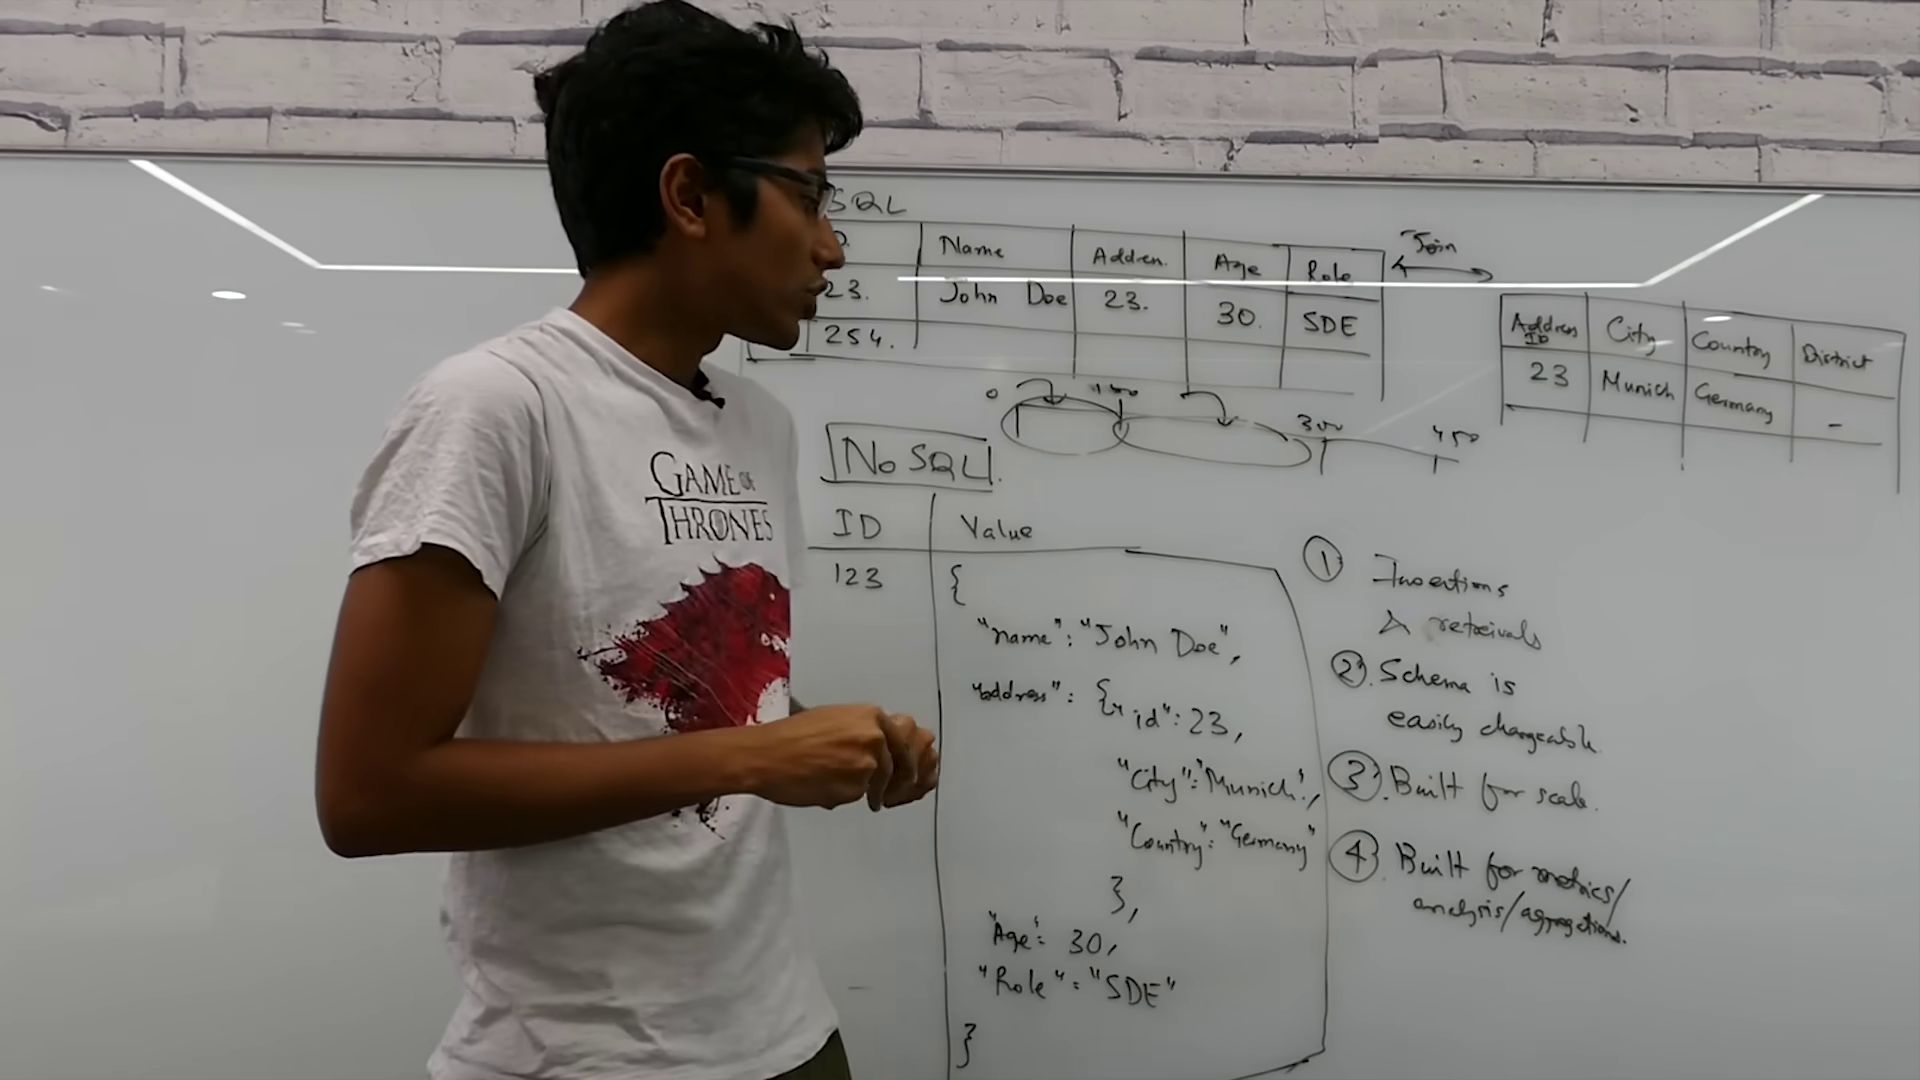 SQL
Name Address Age Role
23. John Doe 23. 30. SDE
254.
Join
Address ID City Country District
23 Munich Germany -
0 100 300 450
NoSQL
ID Value
123 {
"name": "John Doe",
"address": {"id": 23,
"City": "Munich",
"Country": "Germany"
},
"Age": 30,
"Role": "SDE"
}
① Insertions
& retreivals
②. Schema is
easily changeable.
③. Built for scale.
④. Built for metrics/
analysis/aggregations.
GAME OF
THRONES